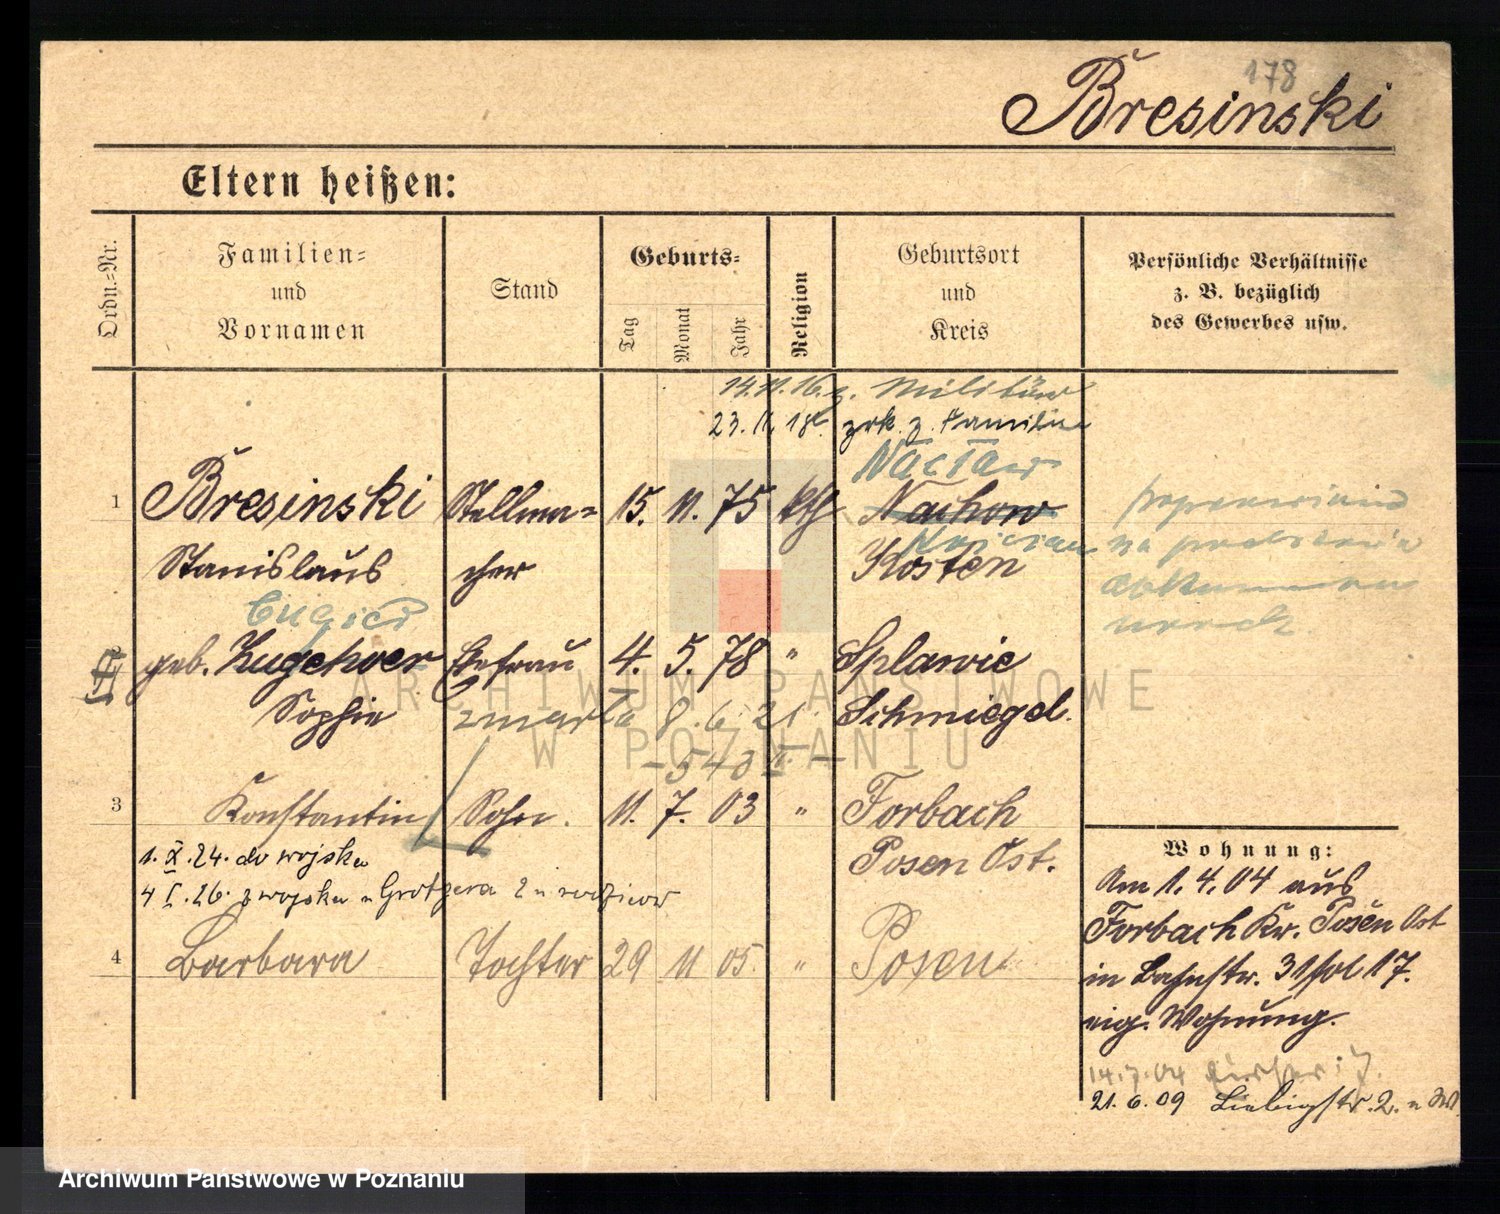 178
Bresinski
Eltern heißen:
Ordn.-Nr.
Familien-
und
Vornamen
Stand
Geburts-
Tag
Monat
Jahr
Religion
Geburtsort
und
Kreis
Persönliche Verhältnisse
z. B. bezüglich
des Gewerbes usw.
14.11.16. z. Militär
23.11.18. zrk. z. Familie
Nacław
1 Bresinski Stellma- 15. 11. 75 kth Nachow
Stanislaus cher Kosten
poprawiono
na podstawie
geb. Ehefrau 4. 5. 78 " Splawie
Sophie zmarła 8. 6. 21. Schmiegel.
3 Konstantin Sohn. 11. 7. 03 " Forbach
1. X. 24. do wojska Posen Ost.
4 I. 26. z wojska rodziców
4 Barbara Tochter 29 11 05. " Posen
Wohnung:
Am 1. 4. 04 aus
Forbach Kr. Posen Ost
in Bahnstr. 31 17.
eig. Wohnung.
14.7.04
21. 6. 09 Liebigstr. 2.
ARCHIWUM PAŃSTWOWE
W POZNANIU
Archiwum Państwowe w Poznaniu